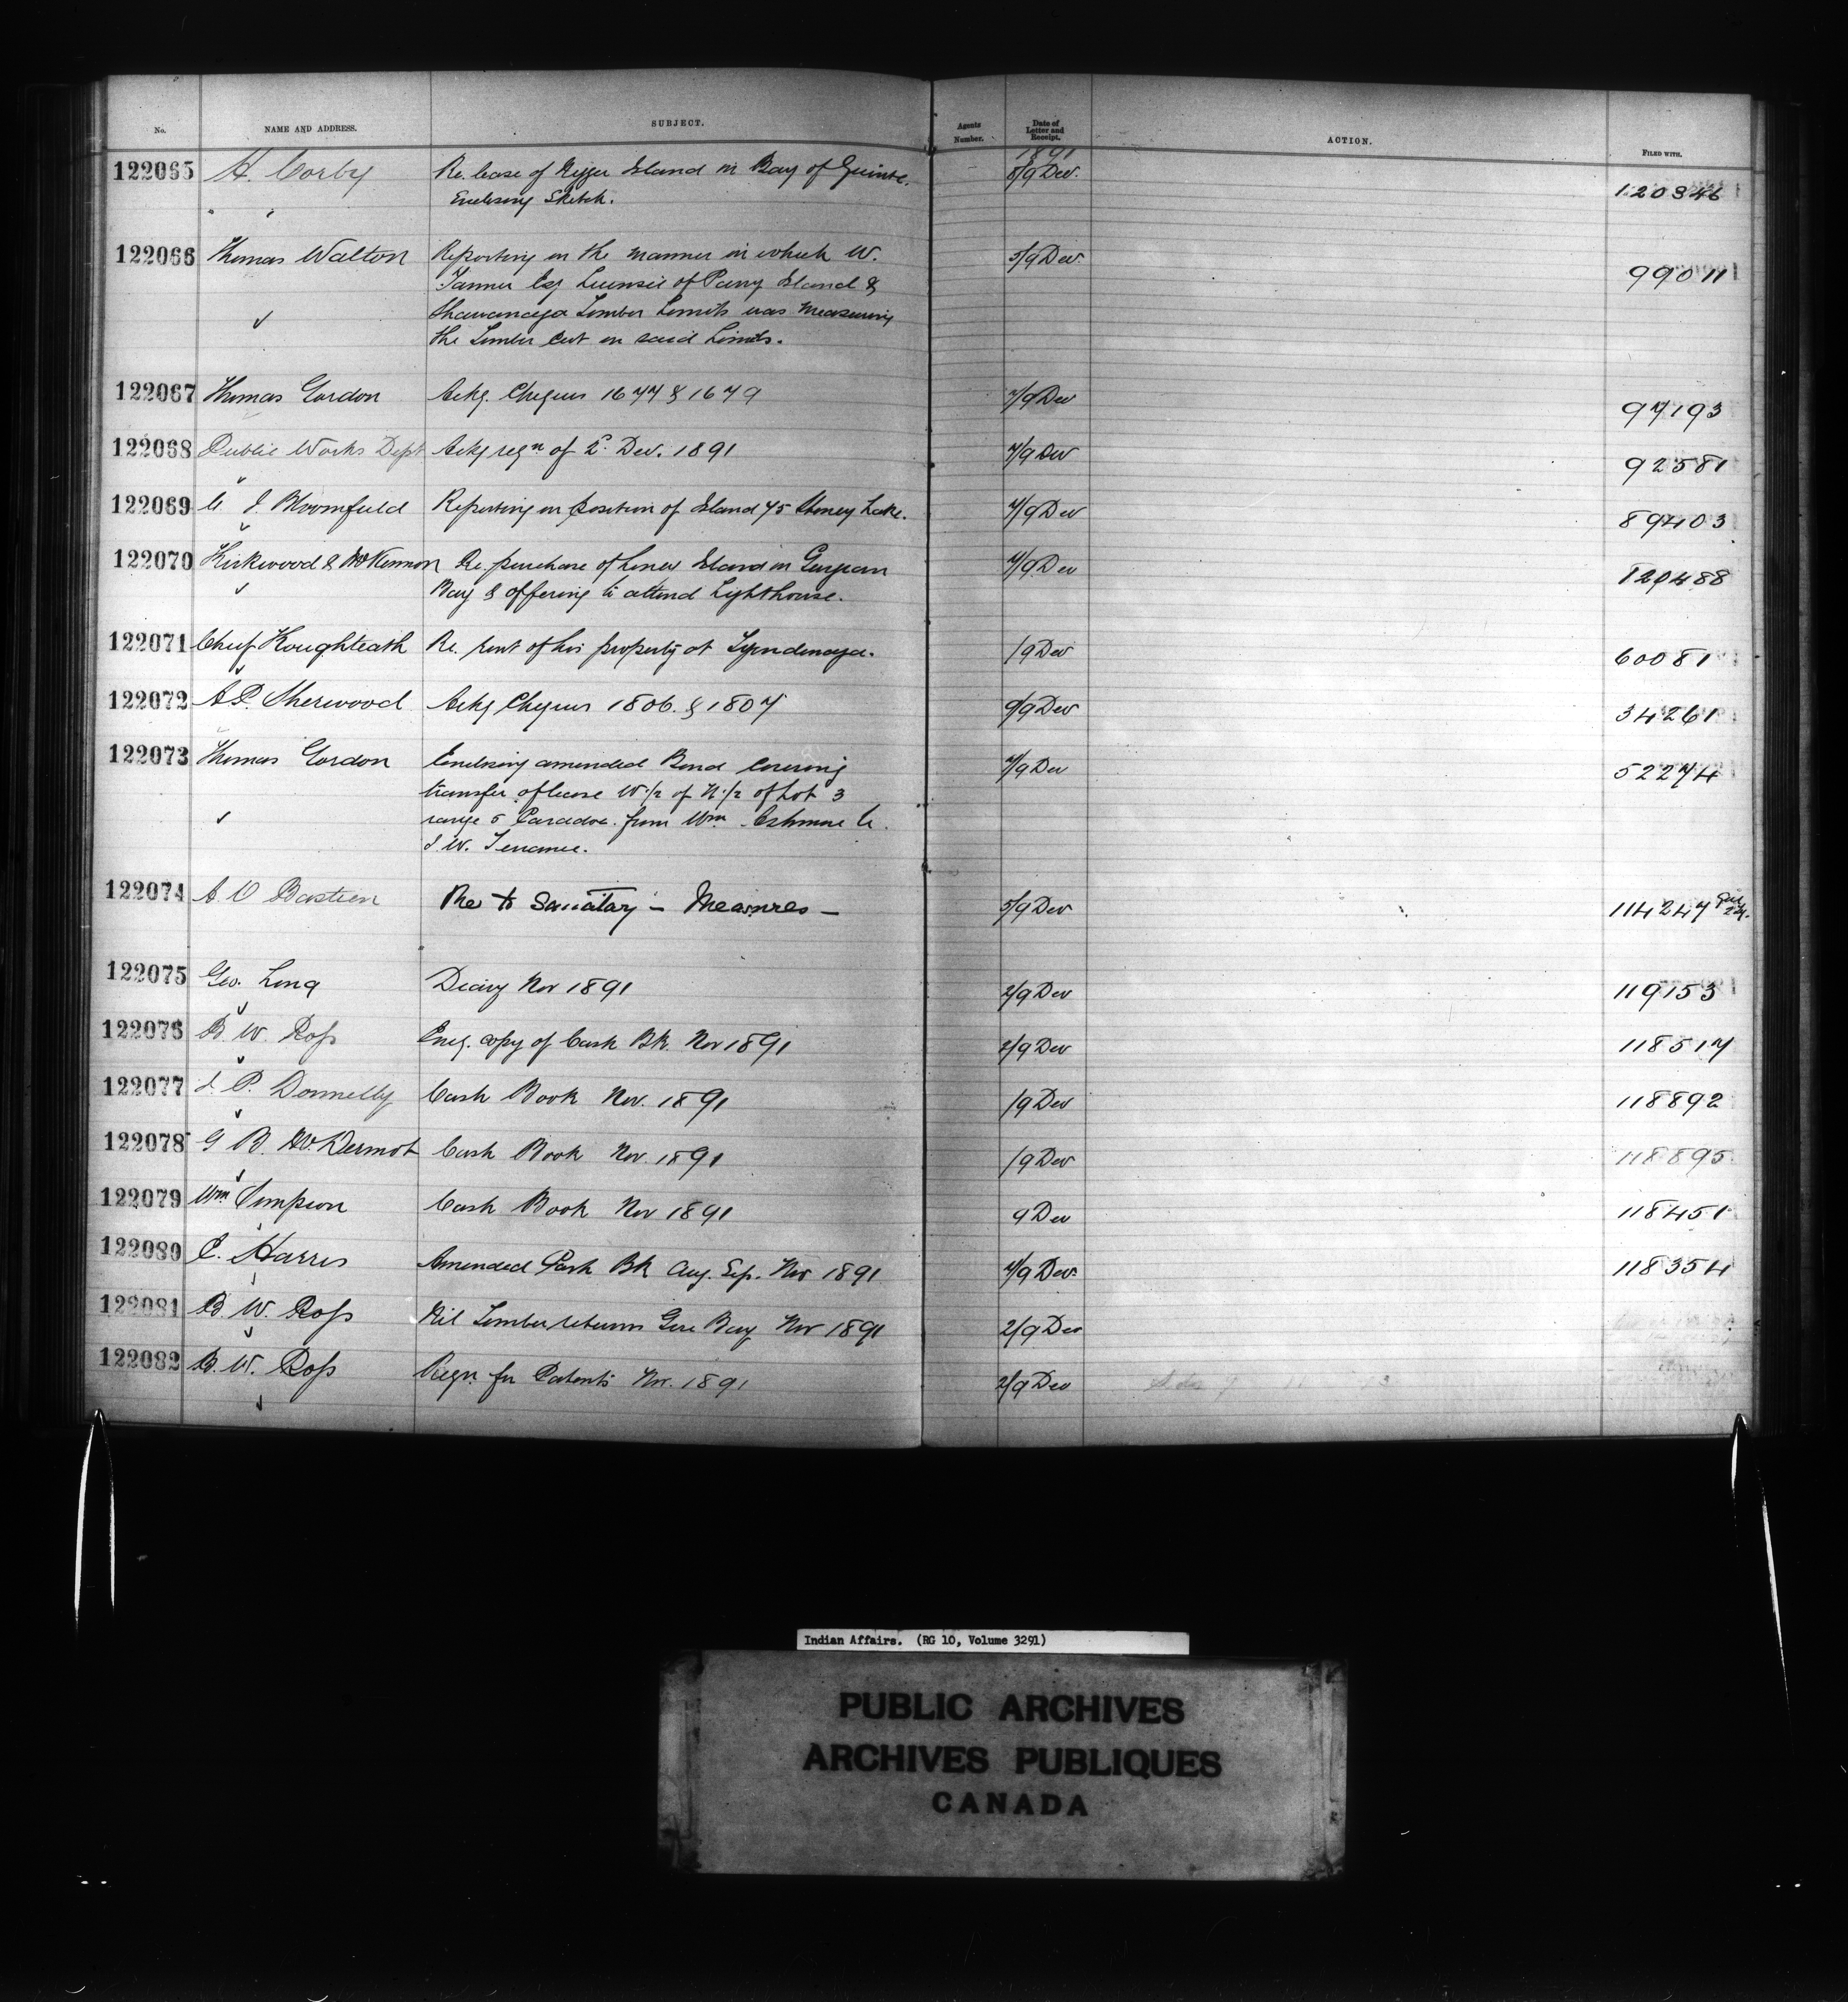 No. NAME AND ADDRESS. SUBJECT. Agents Number. Date of Letter and Receipt. ACTION. FILED WITH.
1891
122065 H. Corby Re. lease of Island in Bay of Quinte. 8/9 Dec. 120346
Enclosing Sketch.
122066 Thomas Walton Reporting on the manner in which W. 5/9 Dec. 99011
Tanner Esq Licensee of Parry Island &
Shawanaga Timber Limits was measuring
the Timber cut on said Limits.
122067 Thomas Gordon Ackg. Cheques 1677 & 1679 7/9 Dec 97193
122068 Public Works Dept Ackg reqn of 2d. Dec. 1891 7/9 Dec 92581
122069 C. J. Bloomfield Reporting on position of Island 75 Stoney Lake. 7/9 Dec 89403
122070 Kirkwood & McKinnon Re. purchase of Island in Georgian 7/9 Dec 120488
Bay & offering to attend Lighthouse.
122071 Chief Re. rent of his property at Tyendinaga. /9 Dec 60081
122072 A.P. Sherwood Ackg Cheques 1806. & 1807 9/9 Dec 34261
122073 Thomas Gordon Enclosing amended Bond covering 7/9 Dec 52274
transfer of lease W 1/2 of N 1/2 of Lot 3
range 5 Caradoc from Wm Ashmore to
J. W. Terrance.
122074 A. O Bastien Re to Sanitary – Measures – 5/9 Dec 114247
122075 Geo. Long Diary Nov 1891 2/9 Dec 119153
122076 B. W. Ross Encg. copy of Cash Bk. Nov 1891 2/9 Dec 118517
122077 J. P. Donnelly Cash Book Nov. 1891 /9 Dec 118892
122078 G B. McDermot Cash Book Nov. 1891 /9 Dec 118895
122079 Wm Simpson Cash Book Nov 1891 9 Dec 118451
122080 E. Harris Amended Cash Bk Aug. Sep. Nov 1891 7/9 Dec. 118354
122081 B. W. Ross Nil Timber returns Gore Bay Nov 1891 2/9 Dec
122082 B. W. Ross Reqn for Patents Nov. 1891 2/9 Dec
Indian Affairs. (RG 10, Volume 3291)
PUBLIC ARCHIVES
ARCHIVES PUBLIQUES
CANADA